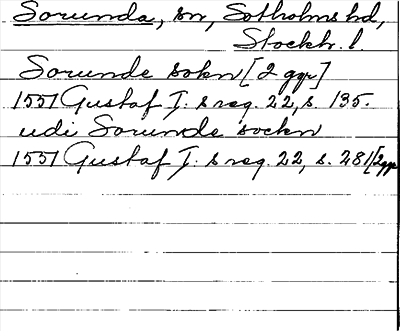 Sorunda, sn, Sotholms hd,
Stockh. l
Sorunde sokn [2 ggr]
1551 Gustaf I:s reg. 22, s. 135.
udi Sorunde sockn
1551 Gustaf I:s reg. 22, s. 281 [2ggr